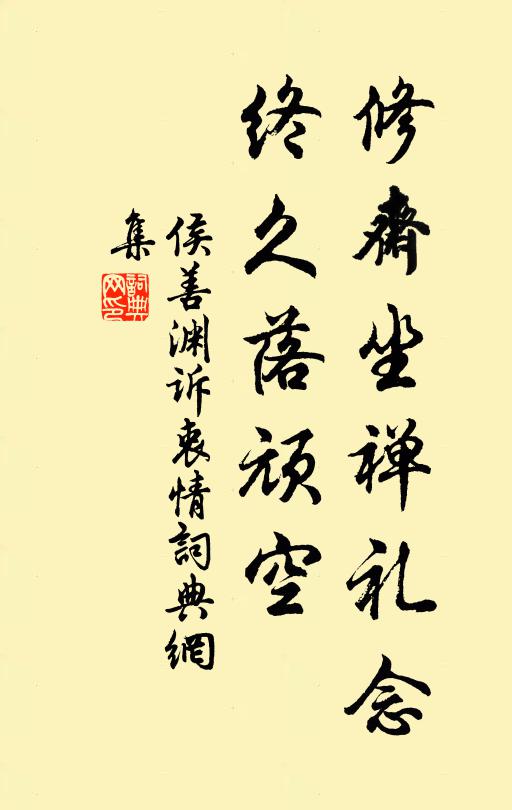 修齋坐禅礼念
终久落顽空
侯善渊诉衷情詞典網
集
詞典网印